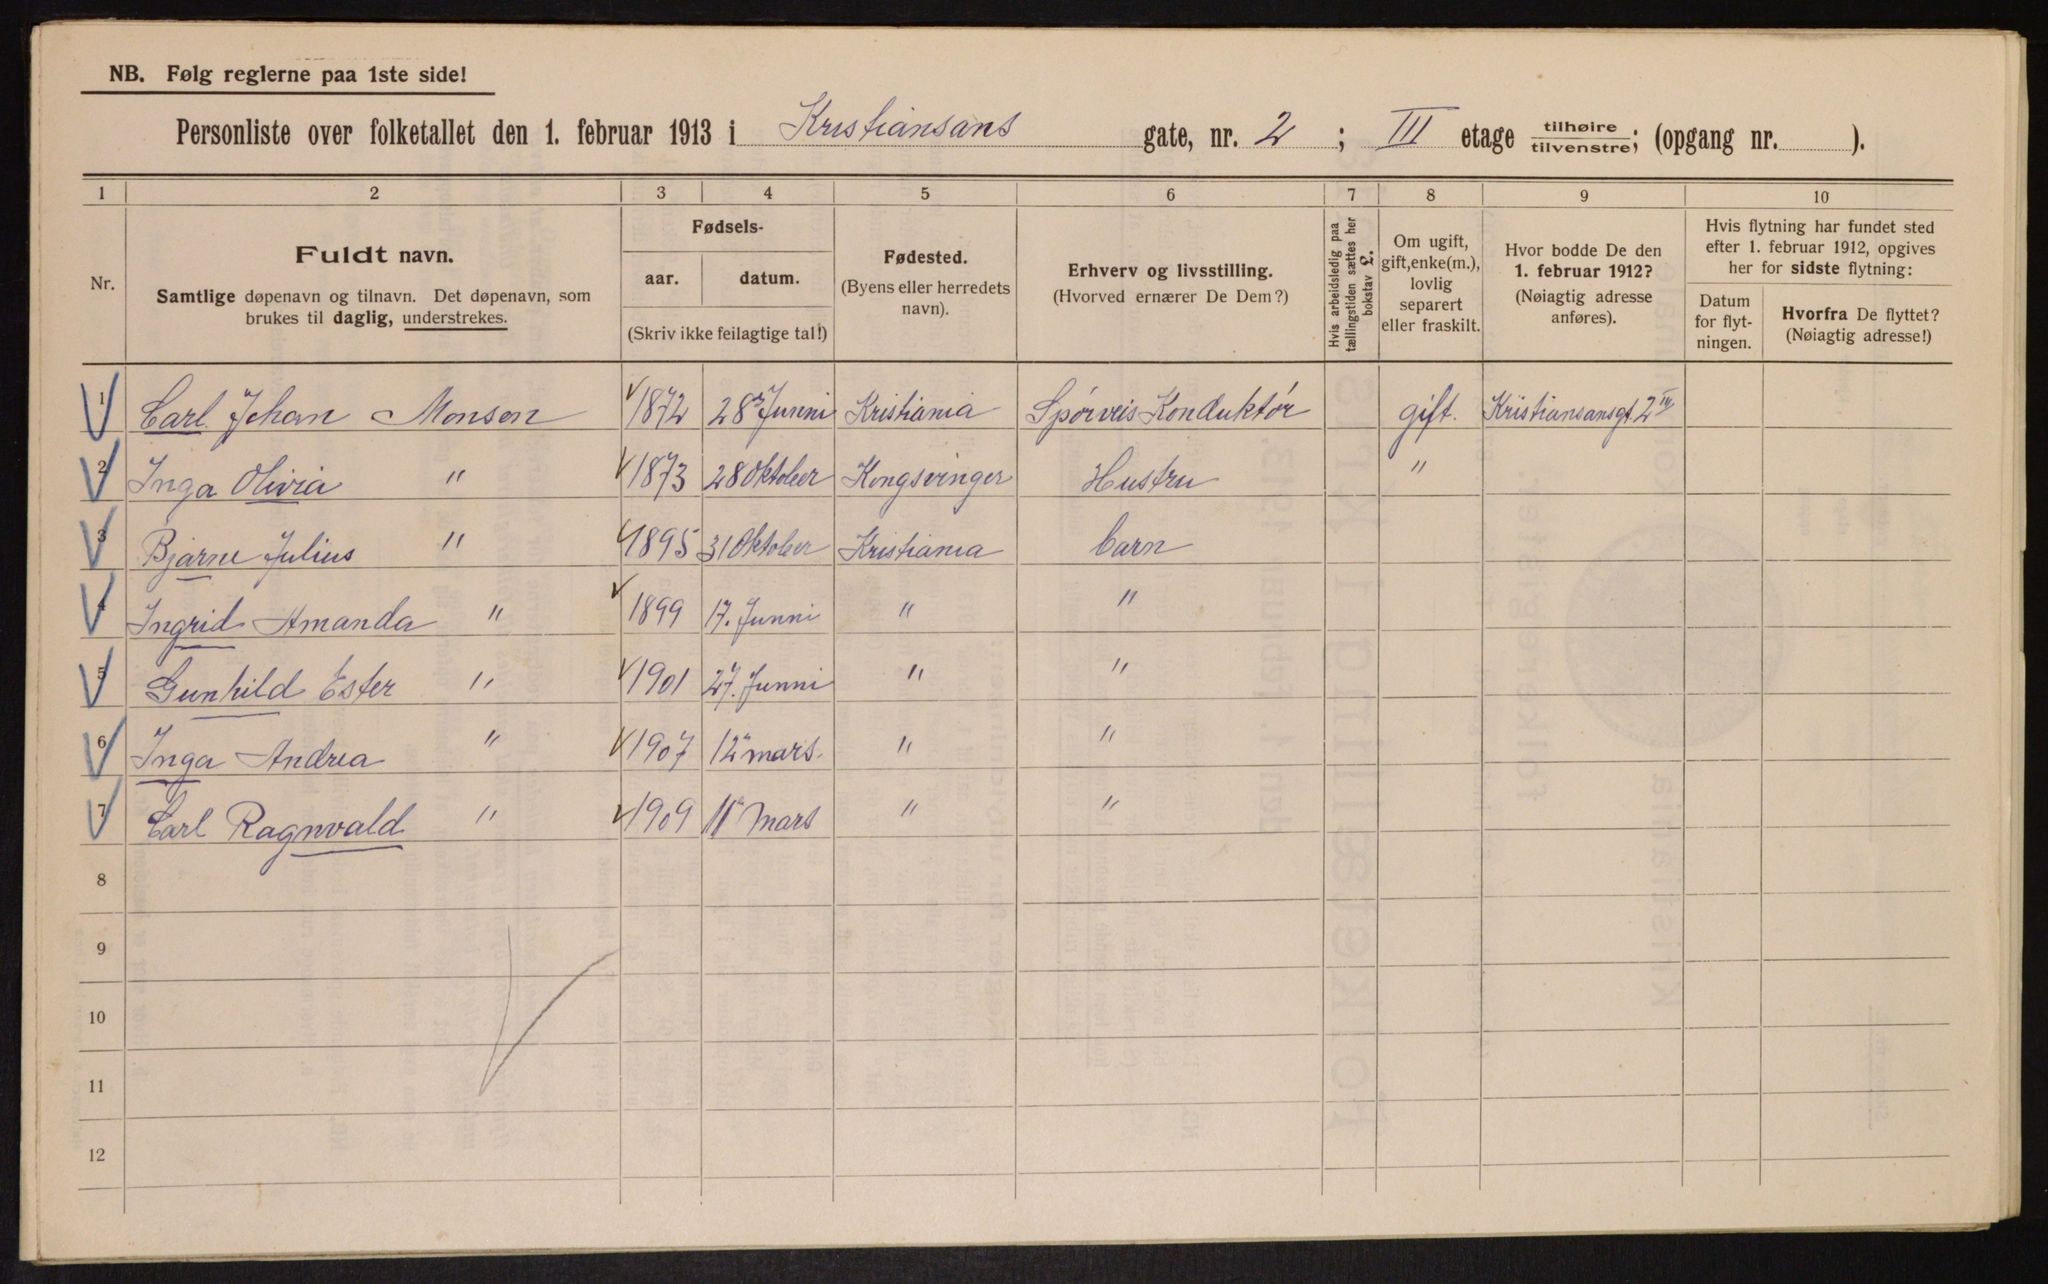 NB. Følg reglerne paa 1ste side!
Personliste over folketallet den 1. februar 1913 i Kristiansans gate, nr. 2 ; III etage tilhøire / tilvenstre; (opgang nr. ).
1 2 3 4 5 6 7 8 9 10
Nr.
Fuldt navn.
Samtlige døpenavn og tilnavn. Det døpenavn, som
brukes til daglig, understrekes.
Fødsels-
aar. datum.
(Skriv ikke feilagtige tal!)
Fødested.
(Byens eller herredets
navn).
Erhverv og livsstilling.
(Hvorved ernærer De Dem?)
Hvis arbeidsledig paa
tællingstiden sættes her
bokstav £.
Om ugift,
gift, enke(m.),
lovlig
separert
eller fraskilt.
Hvor bodde De den
1. februar 1912?
(Nøiagtig adresse
anføres).
Hvis flytning har fundet sted
efter 1. februar 1912, opgives
her for sidste flytning:
Datum
for flyt-
ningen.
Hvorfra De flyttet?
(Nøiagtig adresse!)
1 Carl Johan Monsen 1872 28 Junni Kristiania Spørveis Konduktør gift. Kristiansansgt. 2 III
2 Inga Olivia " 1873 28 Oktober Kongsvinger Hustru "
3 Bjarne Julius " 1895 31 Oktober Kristiania barn
4 Ingrid Amanda " 1899 17. Junni " "
5 Gunhild Ester " 1901 27. Junni " "
6 Inga Andrea " 1907 12 mars. " "
7 Carl Ragnvald " 1909 11 Mars " "
8
9
10
11
12